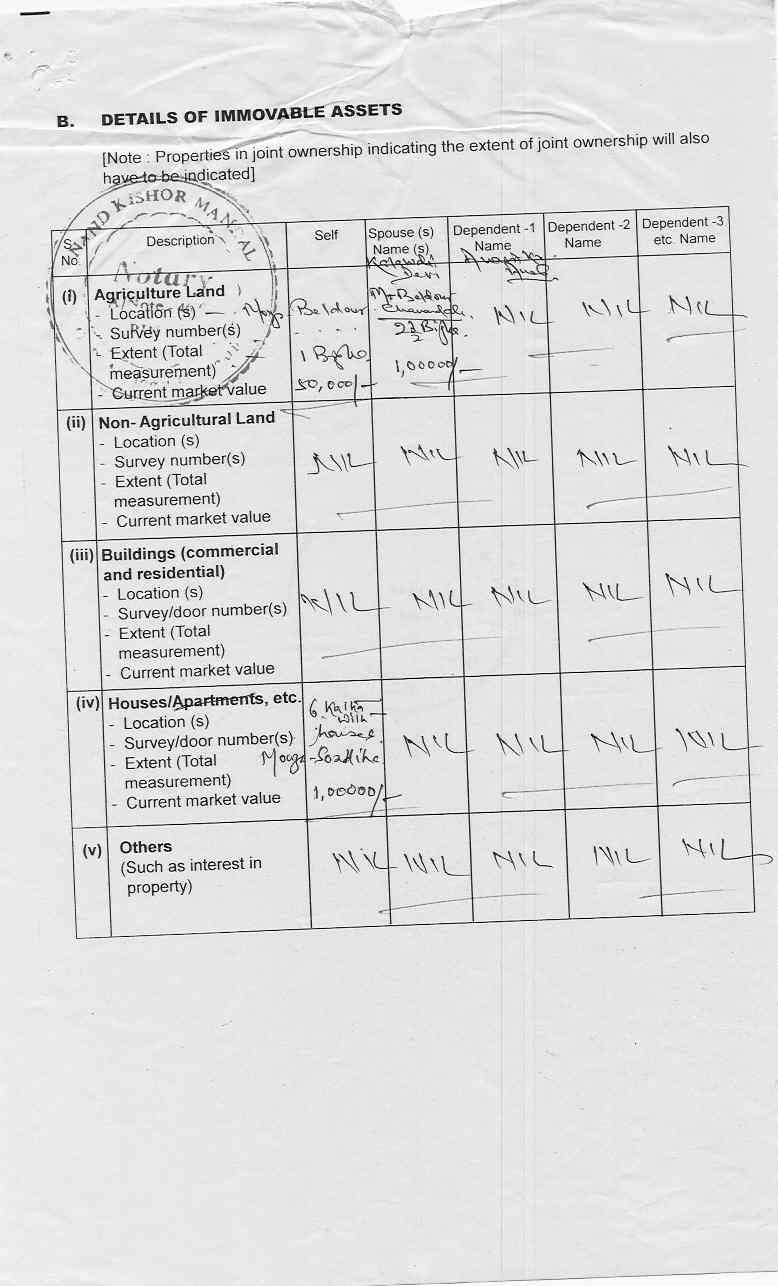 B. DETAILS OF IMMOVABLE ASSETS
[Note : Properties in joint ownership indicating the extent of joint ownership will also
have to be indicated]
NAND KISHOR MANDAL
Notary
S. No. Description Self Spouse (s) Name (s) Dependent -1 Name Dependent -2 Name Dependent -3 etc. Name
Devi
(i) Agriculture Land
- Location (s) Beldour
- Survey number(s)
- Extent (Total
measurement)
- Current market value 50,000/- 1,00000/-
NIL NIL NIL
(ii) Non- Agricultural Land
- Location (s)
- Survey number(s)
- Extent (Total
measurement)
- Current market value
NIL NIL NIL NIL NIL
(iii) Buildings (commercial
and residential)
- Location (s)
- Survey/door number(s)
- Extent (Total
measurement)
- Current market value
NIL NIL NIL NIL NIL
(iv) Houses/Apartments, etc.
- Location (s)
- Survey/door number(s)
- Extent (Total
measurement)
- Current market value
6 Katha
with
1,00000/-
NIL NIL NIL NIL
(v) Others
(Such as interest in
property)
NIL NIL NIL NIL NIL